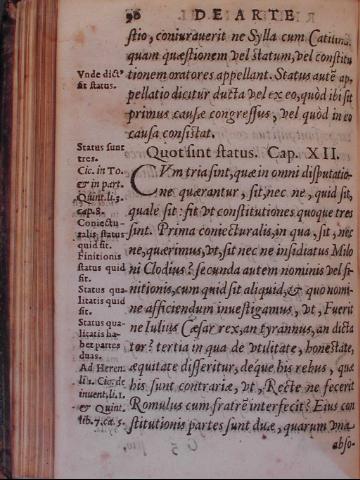 96 DE ARTE
stio, coniurauerit ne Sylla cum Catilina.
quam quæstionem vel statum, vel constitu
tionem oratores appellant. Status autē ap-
pellatio dicitur ducta vel ex eo, quòd ibi sit
primus causæ congressus, vel quòd in eo
causa consistat.
Quot sint status. Cap. XII.
CVm tria sint, quæ in omni disputatio-
ne quærantur, sit, nec ne, quid sit,
quale sit: fit vt constitutiones quoque tres
sint. Prima coniecturalis, in qua, sit, nec
ne, quærimus, vt, sit nec ne insidiatus Milo
ni Clodius? secunda autem nominis vel fi-
nitionis, cum quid sit aliquid, & quo nomi-
ne afficiendum inuestigamus, vt, Fuerit
ne Iulius Cæsar rex, an tyrannus, an dicta
tor? tertia in qua de vtilitate, honestate,
æquitate disseritur, deque his rebus, quæ
his sunt contrariæ, vt, Recte ne fecerit
Romulus cum fratrē interfecit? Eius con
stitutionis partes sunt duæ, quarum vna
abso-
Vnde dict°
sit status.
Status sunt
tres.
Cic. in To.
& in part.
Quint. li. 3.
cap. 8.
Coniectu-
ralis status
quid sit.
Finitionis
status quid
sit.
Status qua
litatis quid
sit.
Status qua-
litatis ha-
bet partes
duas.
Ad Heren.
li. 1. Cic. de
inuent. li. 1.
& Quint.
lib. 7. ca. 5.